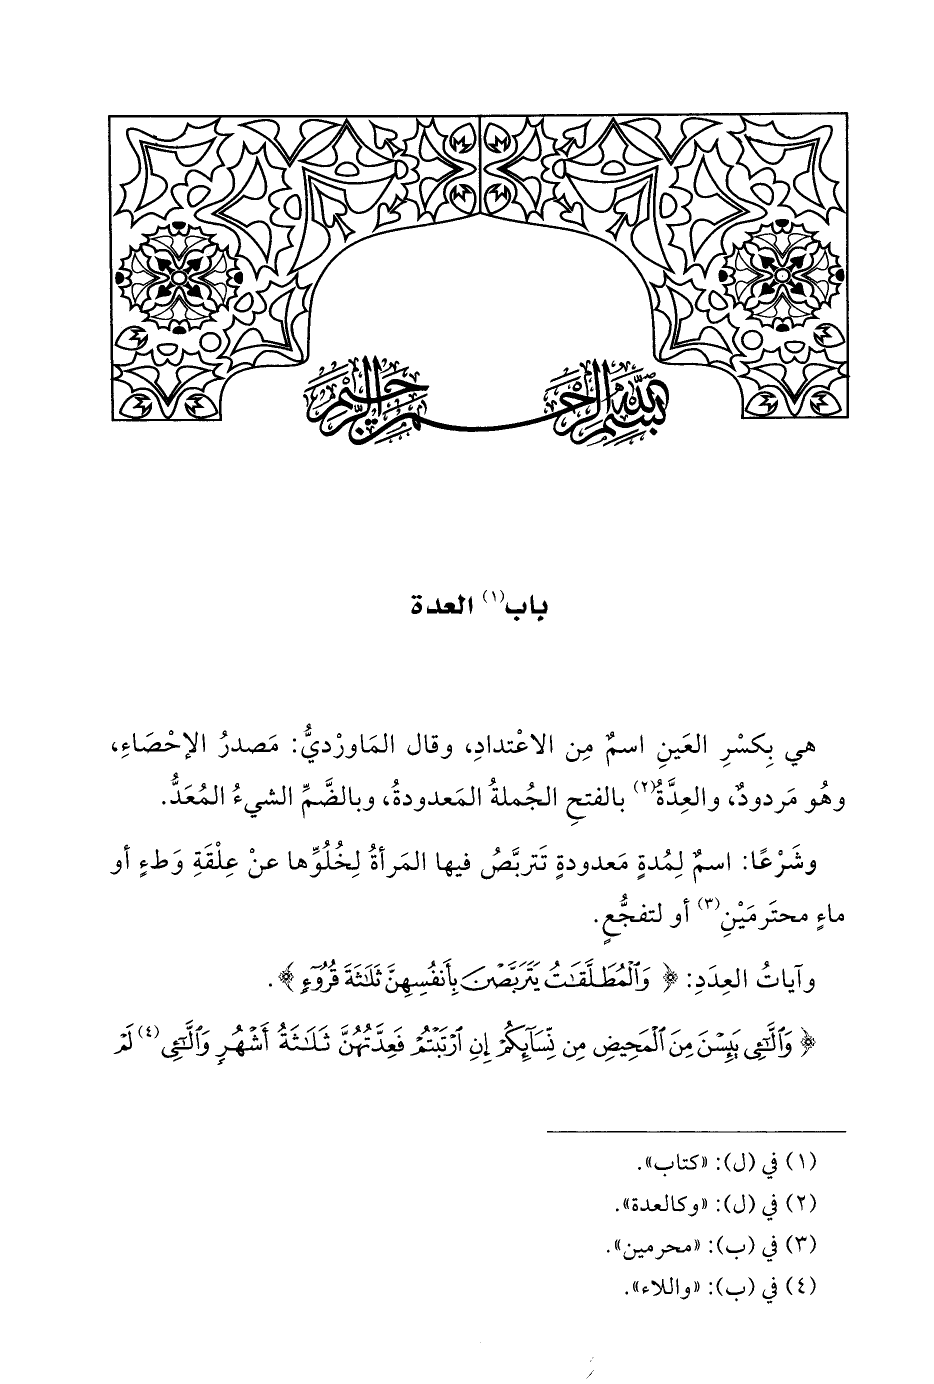 بسم الله الرحمن الرحيم
باب(١) العدة
هي بِكسْرِ العَينِ اسمٌ مِن الاعْتدادِ، وقال المَاورْديُّ: مَصدرُ الإحْصَاءِ،
وهُو مَردودٌ، والعِدَّةُ(٢) بالفتحِ الجُملةُ المَعدودةُ، وبالضَّمِّ الشيءُ المُعَدُّ.
وشَرْعًا: اسمٌ لِمُدةٍ مَعدودةٍ تَتربَّصُ فيها المَرأةُ لِخُلُوِّها عنْ عِلْقَةِ وَطءٍ أو
ماءٍ محتَرمَيْنِ(٣) أو لتفجُّعٍ.
وآياتُ العِدَدِ: ﴿ وَٱلْمُطَلَّقَٰتُ يَتَرَبَّصْنَ بِأَنفُسِهِنَّ ثَلَٰثَةَ قُرُوٓءٍ ﴾.
﴿ وَٱلَّٰٓـِٔى يَئِسْنَ مِنَ ٱلْمَحِيضِ مِن نِّسَآئِكُمْ إِنِ ٱرْتَبْتُمْ فَعِدَّتُهُنَّ ثَلَٰثَةُ أَشْهُرٍ وَٱلَّٰٓـِٔى(٤) لَمْ
(١) في (ل): «كتاب».
(٢) في (ل): «وكالعدة».
(٣) في (ب): «محرمين».
(٤) في (ب): «واللاء».